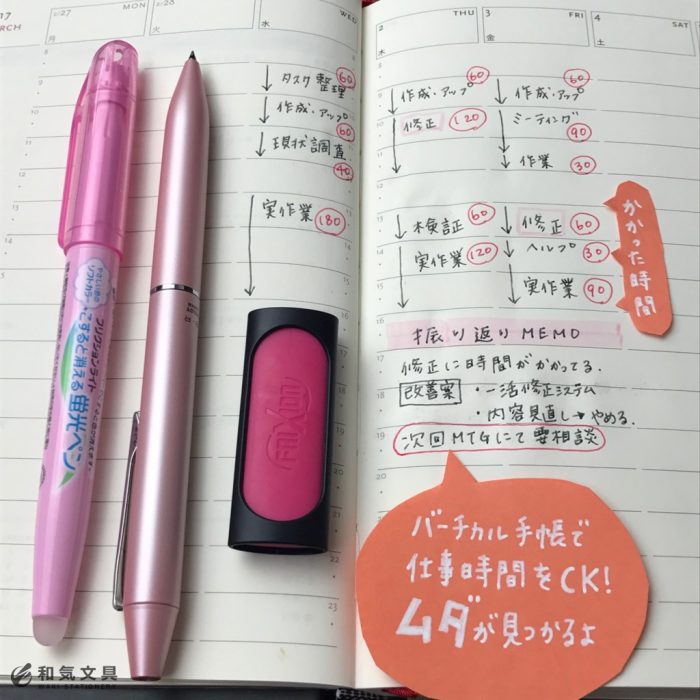 17
MARCH
2/27
MON
月
2/28
火
WED
水
2
THU
木
3
FRI
金
4
SAT
土
タスク整理 60
作成・アップ 60
現状調査 40
実作業 180
作成・アップ 60
修正 120
検証 60
実作業 120
作成・アップ 60
ミーティング 90
作業 30
修正 60
ヘルプ 30
実作業 90
かかった時間
振り返りMEMO
修正に時間がかかってる。
改善案 ・一活修正システム
・内容見直し→やめる。
次回MTGにて要相談
バーチカル手帳で
仕事時間をCK!
ムダが見つかるよ
ソフトカラー
フリクションライト
こすると消える
蛍光ペン
8
9
10
11
12
13
14
15
16
17
18
19
20
21
22
23
和気文具
WAKI STATIONERY